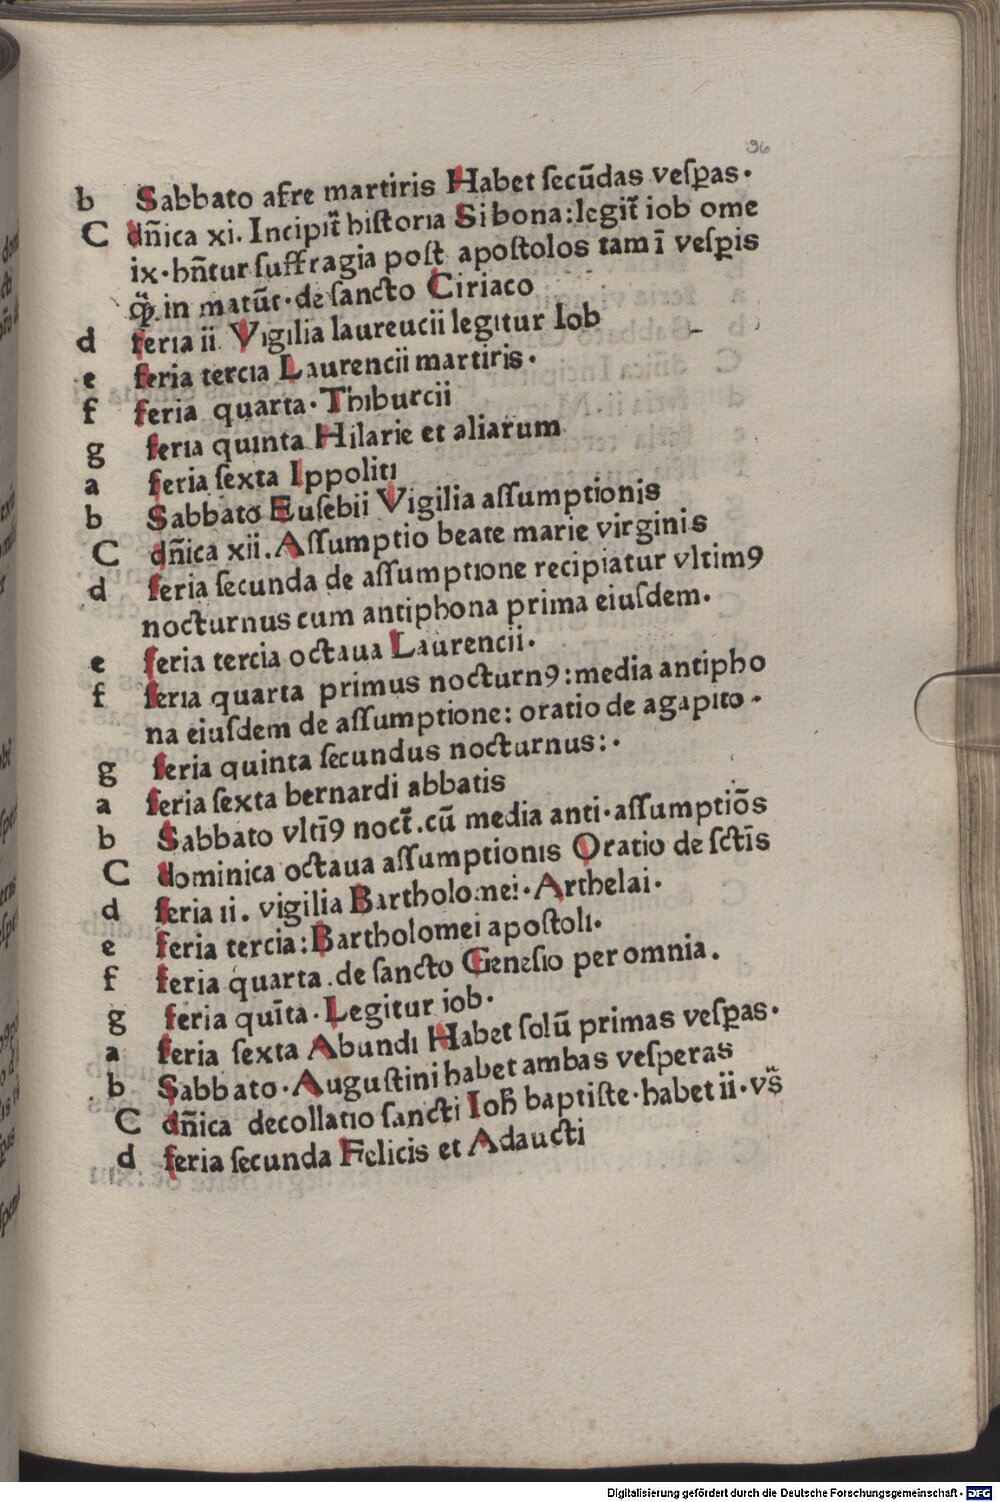 96
b Sabbato afre martiris Habet ſecūdas veſꝑas.
C dñica xi. Incipit̃ hiſtoria Si bona: legit̃ iob ome
ix. hñtur ſuffragia poſt apoſtolos tam ī veſꝑis
q̃ꝫ in matūt. de ſancto Ciriaco
d feria ii. Vigilia laureucii legitur Iob
e feria tercia Laurencii martiris.
f feria quarta. Thiburcii
g feria quinta Hilarie et aliarum
a feria ſexta Ippoliti
b Sabbato Euſebii Vigilia aſſumptionis
C dñica xii. Aſſumptio beate marie virginis
d feria ſecunda de aſſumptione recipiatur vltimꝰ
nocturnus cum antiphona prima eiuſdem.
e feria tercia octaua Laurencii.
f feria quarta primus nocturnꝰ: media antipho
na eiuſdem de aſſumptione: oratio de agapito.
g feria quinta ſecundus nocturnus:.
a feria ſexta bernardi abbatis
b Sabbato vltīꝰ noct̃. cū media anti. aſſumptiōs
C dominica octaua aſſumptionis Oratio de ſctīs
d feria ii. vigilia Bartholomei. Arthelai.
e feria tercia: Bartholomei apoſtoli.
f feria quarta. de ſancto Geneſio per omnia.
g feria quīta. Legitur iob.
a feria ſexta Abundi Habet ſolū primas veſꝑas.
b Sabbato. Auguſtini habet ambas veſperas
C dñica decollatio ſancti Ioh̄ baptiſte. habet ii. vs̃
d feria ſecunda Felicis et Adaucti
Digitalisierung gefördert durch die Deutsche Forschungsgemeinschaft - DFG